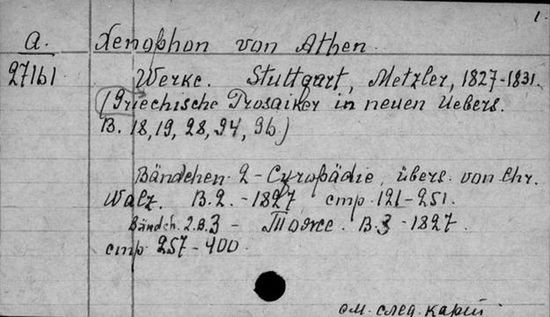 1.
A. Xenophon von Athen.
27161 Werke. Stuttgart, Metzler, 1827-1831.
(Griechische Prosaiker in neuen Uebers.
B. 18, 19, 28, 94, 96)
Bändchen 2 - Cyropädie, übers. von Chr.
Walz. B. 2. - 1827 стр 121-251.
Bändch. 2. B. 3 - Тоже. B. 3 - 1827.
стр 257-400.
см. след. карт